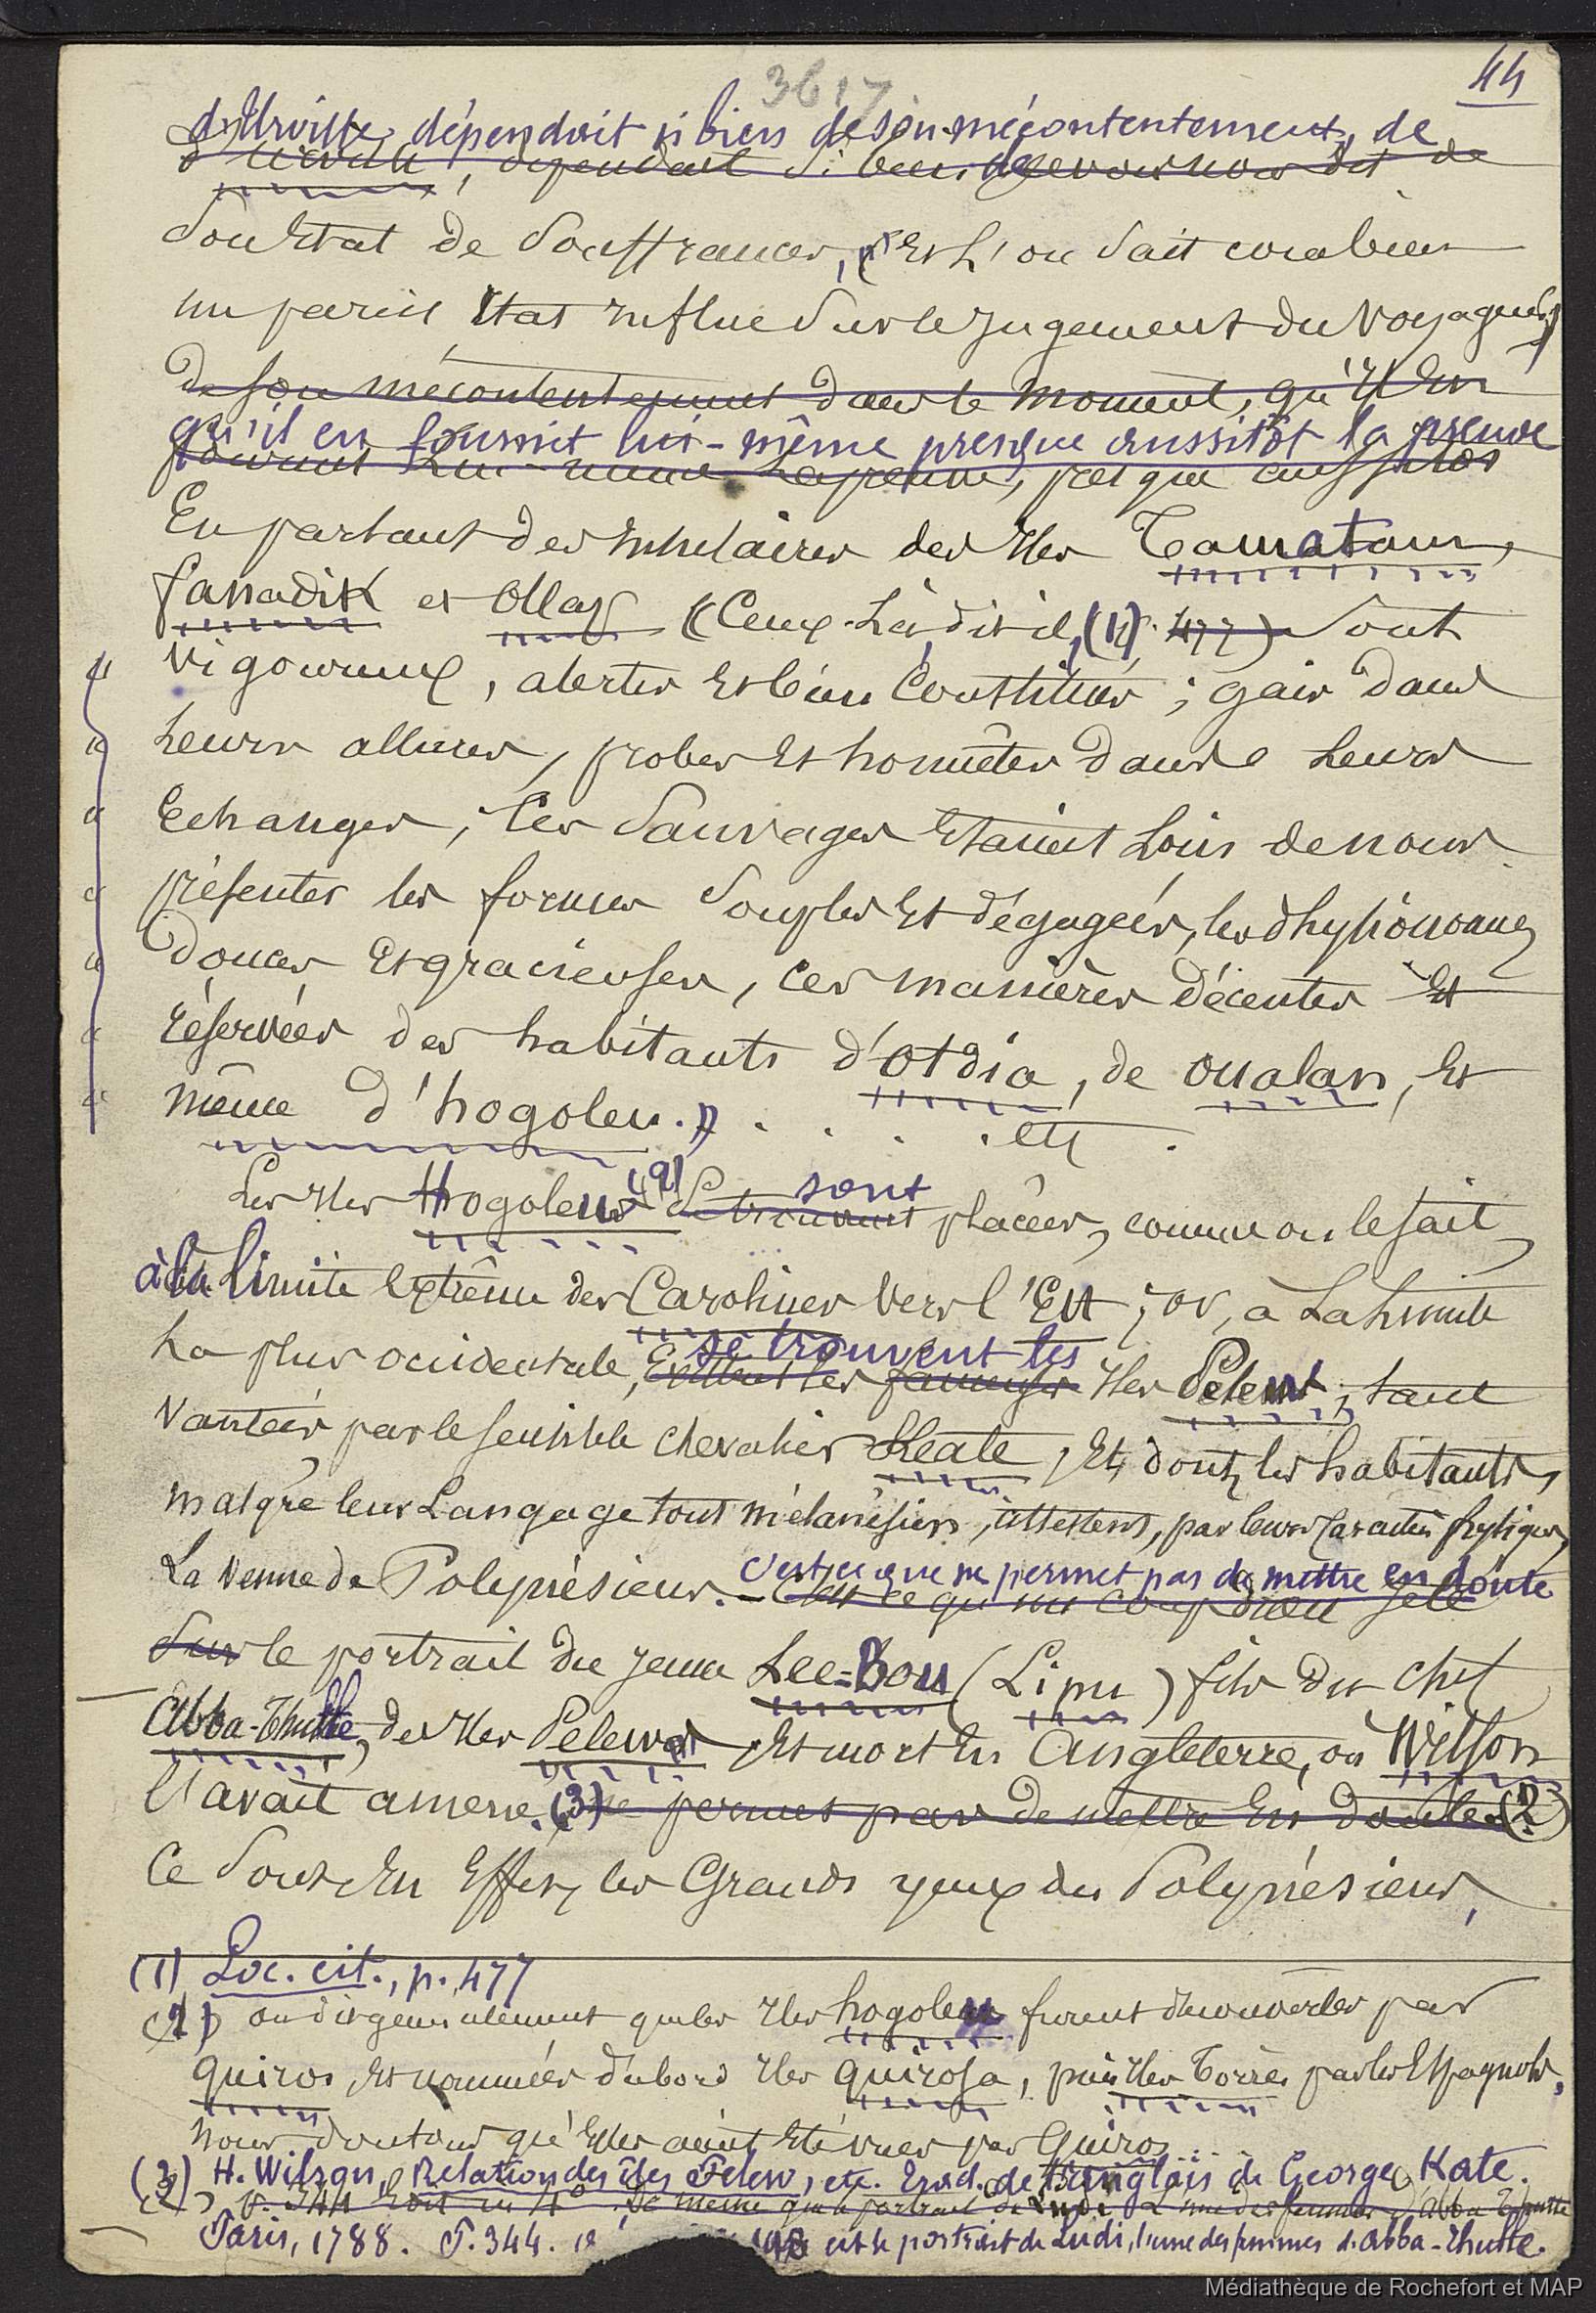 3617
44
d'Urville, dépendait si bien de son mécontentement, de
d'Urville, dépendait si bien de
son état de souffrances, (et l'on sait combien
un pareil état influe sur le jugement du voyageur)
de son mécontentement dans le moment, qu'il en
qu'il en fournit lui-même presque aussitôt la preuve
fournit lui-même la preuve, presque aussitôt
En parlant des insulaires des îles Tamatam,
fanadik et Ollap « Ceux-là, dit-il, (1) p. 477) sont
" vigoureux, alertes et bien constitués ; gais dans
" leurs allures, probes et honnêtes dans leurs
" échanges, ces sauvages étaient loin de nous
" présenter les formes souples et dégagées, les physionomies
" douces et gracieuses, ces manières décentes et
" réservées des habitants d'Otdia, de Oualan, et
" même d'hogoleu. » . . . . etc .
Les îles Hogoleu (2) se trouvent sont placées, comme on le sait,
à la limite extrême des Carolines vers l'Est ; or, à la limite
la plus occidentale, existent les fameuses se trouvent les îles Pelew, tant
vantées par le sensible chevalier Keate, et dont les habitants,
malgré leur langage tout mélanésien, attestent, par leurs caractères physiques,
la venue de Polynésiens. C'est ce que ne permet pas de mettre en doute
C'est ce qu'un coup d'œil jeté
sur le portrait du jeune Lee-Bou (Lipu) fils du chef
Abba-Thulle, des îles Pelew et mort en Angleterre, où Wilson
l'avait amené. (3) ne permet pas de mettre en doute (2)
Ce sont, en effet, les grands yeux des Polynésiens,
(1) Loc. cit., p. 477
(2) on dit généralement que les îles hogoleu furent découvertes par
Quiros, et nommées d'abord îles Quirosa, puis îles Torrès par les Espagnols,
nous doutons qu'elles aient été vues par Quiros..
(3) H. Wilson, Relation des îles Pelew, etc. Trad. de l'anglais de George Kate.
p. 344 in 4°. De même que le portrait de Ludi, l'une des femmes d'Abba Thulle
Paris, 1788. P. 344. est le portrait de Ludi, l'une des femmes d'Abba-Thulle.
Médiathèque de Rochefort et MAP